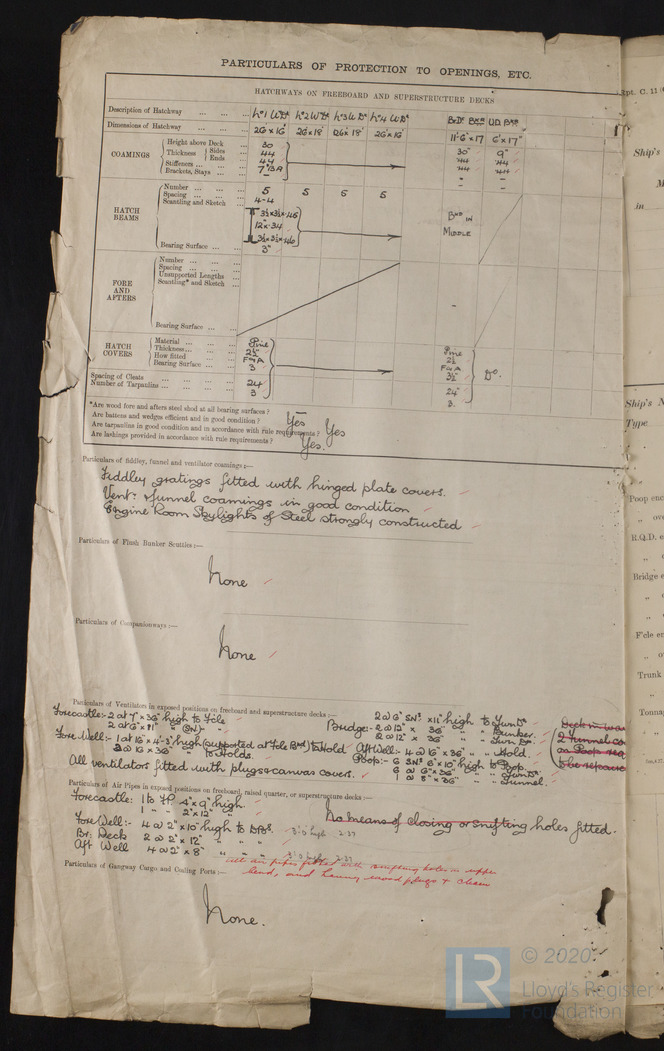 PARTICULARS OF PROTECTION TO OPENINGS, ETC.
HATCHWAYS ON FREEBOARD AND SUPERSTRUCTURE DECKS
Description of Hatchway No 1 W Dk No 2 W Dk No 3 W Dk No 4 W Dk Br Dk Bkr UD Bkr
Dimensions of Hatchway 26' x 16' 26' x 18' 26' x 18' 26' x 16' 11'-6" x 17 6' x 17"
COAMINGS
Height above Deck 30 30" 9"
Thickness Sides .44 .44 .44
Ends .44 .44 .44
Stiffeners 7" BA
Brackets, Stays – – –
HATCH BEAMS
Number 5 5 5 5
Spacing 4-4
Scantling and Sketch 3½ x 3½ x .46
12" x .34
3½ x 3½ x .46
Bearing Surface 3"
IN
MIDDLE
FORE AND AFTERS
Number
Spacing
Unsupported Lengths
Scantling* and Sketch
Bearing Surface
HATCH COVERS
Material Pine Pine
Thickness 2½" 2½
How fitted F & A F & A Do.
Bearing Surface 3 3½"
Spacing of Cleats 24 24"
Number of Tarpaulins 3 3.
*Are wood fore and afters steel shod at all bearing surfaces? –
Are battens and wedges efficient and in good condition? Yes
Are tarpaulins in good condition and in accordance with rule requirements? Yes
Are lashings provided in accordance with rule requirements? Yes.
Particulars of fiddley, funnel and ventilator coamings:—
Fiddley gratings fitted with hinged plate covers.
Vent. & funnel coamings in good condition
Engine Room Skylights of Steel strongly constructed
Particulars of Flush Bunker Scuttles:—
None
Particulars of Companionways:—
None
Particulars of Ventilators in exposed positions on freeboard and superstructure decks:—
Forecastle:- 2 at 7" x 36" high to Fcle
2 at 6" x 11" (SN) " "
Fore Well:- 1 at 16" x 4'-3" high (supported at Fcle Bhd) to Hold
3 @ 16" x 36" " to Holds.
All ventilators fitted with plugs & canvas covers.
2 @ 6" SN. x 11" high to Twn Dk
Bridge:- 2 @ 12" x 36" " " Bunker.
2 @ 12" x 36" " " Twn Dk
Aft Well:- 4 @ 16" x 36" " " Hold.
Poop:- 6 SNs 6" x 10" high to Poop.
6 @ 6" x 36" " " Twn Dk
1 @ 8" x 36" " " Tunnel.
Particulars of Air Pipes in exposed positions on freeboard, raised quarter, or superstructure decks:—
Forecastle: 1 to FP 4" x 9" high.
1 " " 2" x 12" "
Fore Well:- 4 @ 2" x 10" high to
Br. Deck 2 @ 2" x 12" " " "
Aft Well 4 @ 2" x 8" " " "
3'.0 high 2.37
3'.0 high 2.37
No means of closing or snifting holes fitted.
All air pipes fitted with snifting holes in upper
bend, and having wood plugs & chain
Particulars of Gangway Cargo and Coaling Ports:—
None.
Rpt. C. 11
Ship's
in
Ship's N
Type
Poop enc
" ov
R.Q.D. e
Bridge e
F'cle er
Trunk
Tonna
LR
© 2020
Lloyd's Register
Foundation